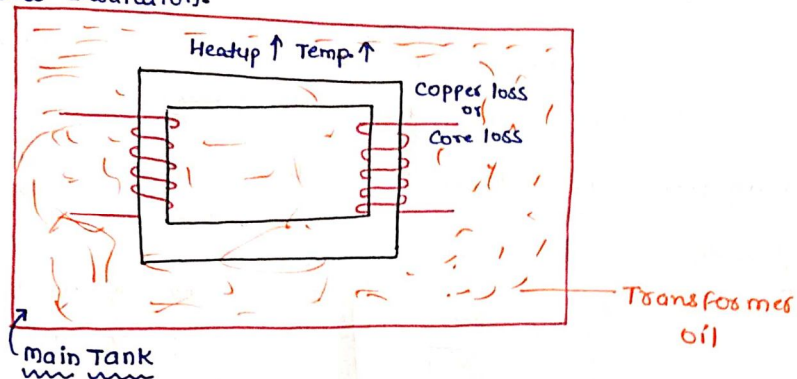 Heatup ↑ Temp. ↑
Copper loss
or
Core loss
Transformer
oil
Main Tank